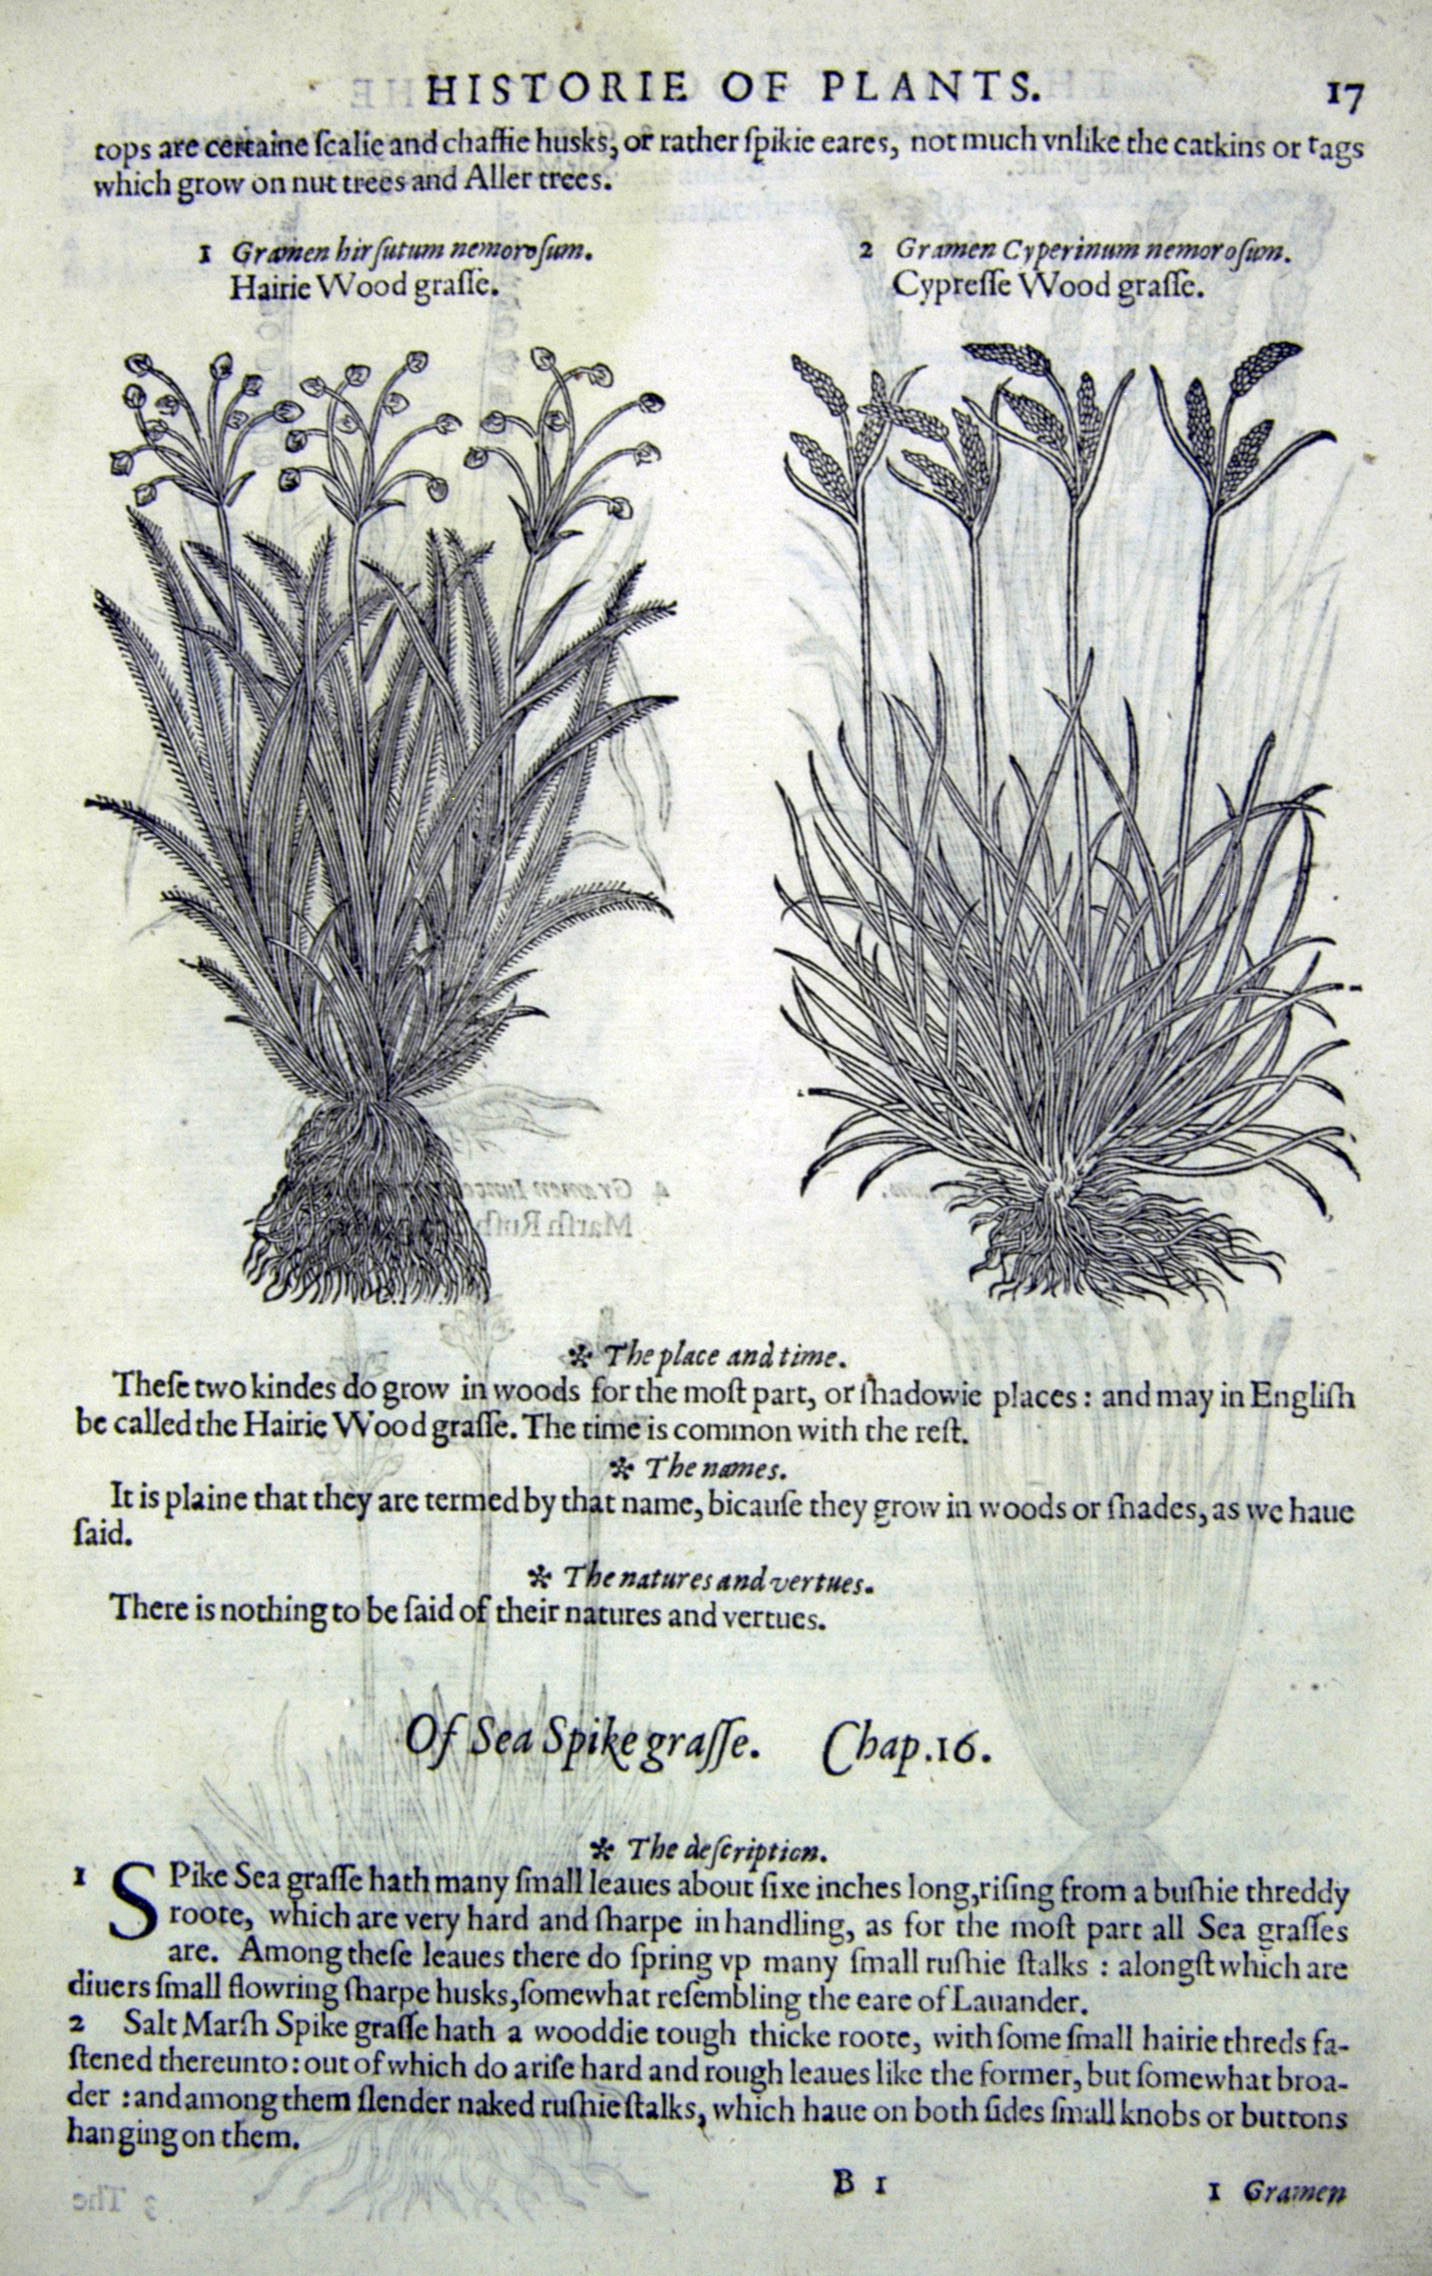 HISTORIE OF PLANTS. 17
tops are certaine ſcalie and chaffie husks, or rather ſpikie eares, not much vnlike the catkins or tags
which grow on nut trees and Aller trees.
1 Gramen hirſutum nemoroſum.
Hairie Wood graſſe.
2 Gramen Cyperinum nemoroſum.
Cypreſſe Wood graſſe.
✻ The place and time.
Theſe two kindes do grow in woods for the moſt part, or ſhadowie places : and may in Engliſh
be called the Hairie Wood graſſe. The time is common with the reſt.
✻ The names.
It is plaine that they are termed by that name, bicauſe they grow in woods or ſhades, as we haue
ſaid.
✻ The natures and vertues.
There is nothing to be ſaid of their natures and vertues.
Of Sea Spike graſſe. Chap.16.
✻ The deſcription.
1 SPike Sea graſſe hath many ſmall leaues about ſixe inches long, riſing from a buſhie threddy
roote, which are very hard and ſharpe in handling, as for the moſt part all Sea graſſes
are. Among theſe leaues there do ſpring vp many ſmall ruſhie ſtalks : alongſt which are
diuers ſmall flowring ſharpe husks, ſomewhat reſembling the eare of Lauander.
2 Salt Marſh Spike graſſe hath a wooddie tough thicke roote, with ſome ſmall hairie threds fa-
ſtened thereunto : out of which do ariſe hard and rough leaues like the former, but ſomewhat broa-
der : and among them ſlender naked ruſhie ſtalks, which haue on both ſides ſmall knobs or buttons
hanging on them.
B 1 1 Gramen